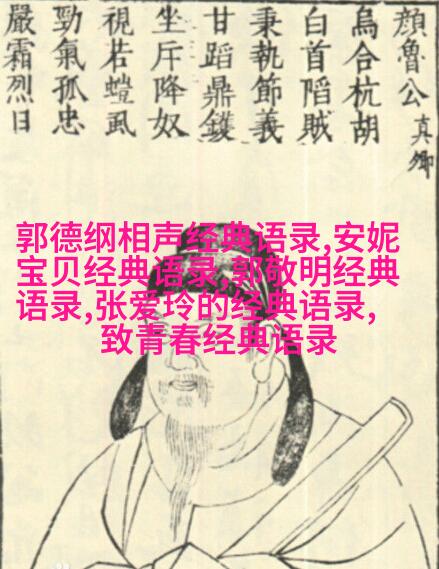 顔魯公真卿
烏合杭胡
白首陷賊
秉執節義
甘蹈鼎鑊
坐斥降奴
視若螘虱
勁氣孤忠
嚴霜烈日
郭德纲相声经典语录,安妮
宝贝经典语录,郭敬明经典
语录,张爱玲的经典语录,
致青春经典语录